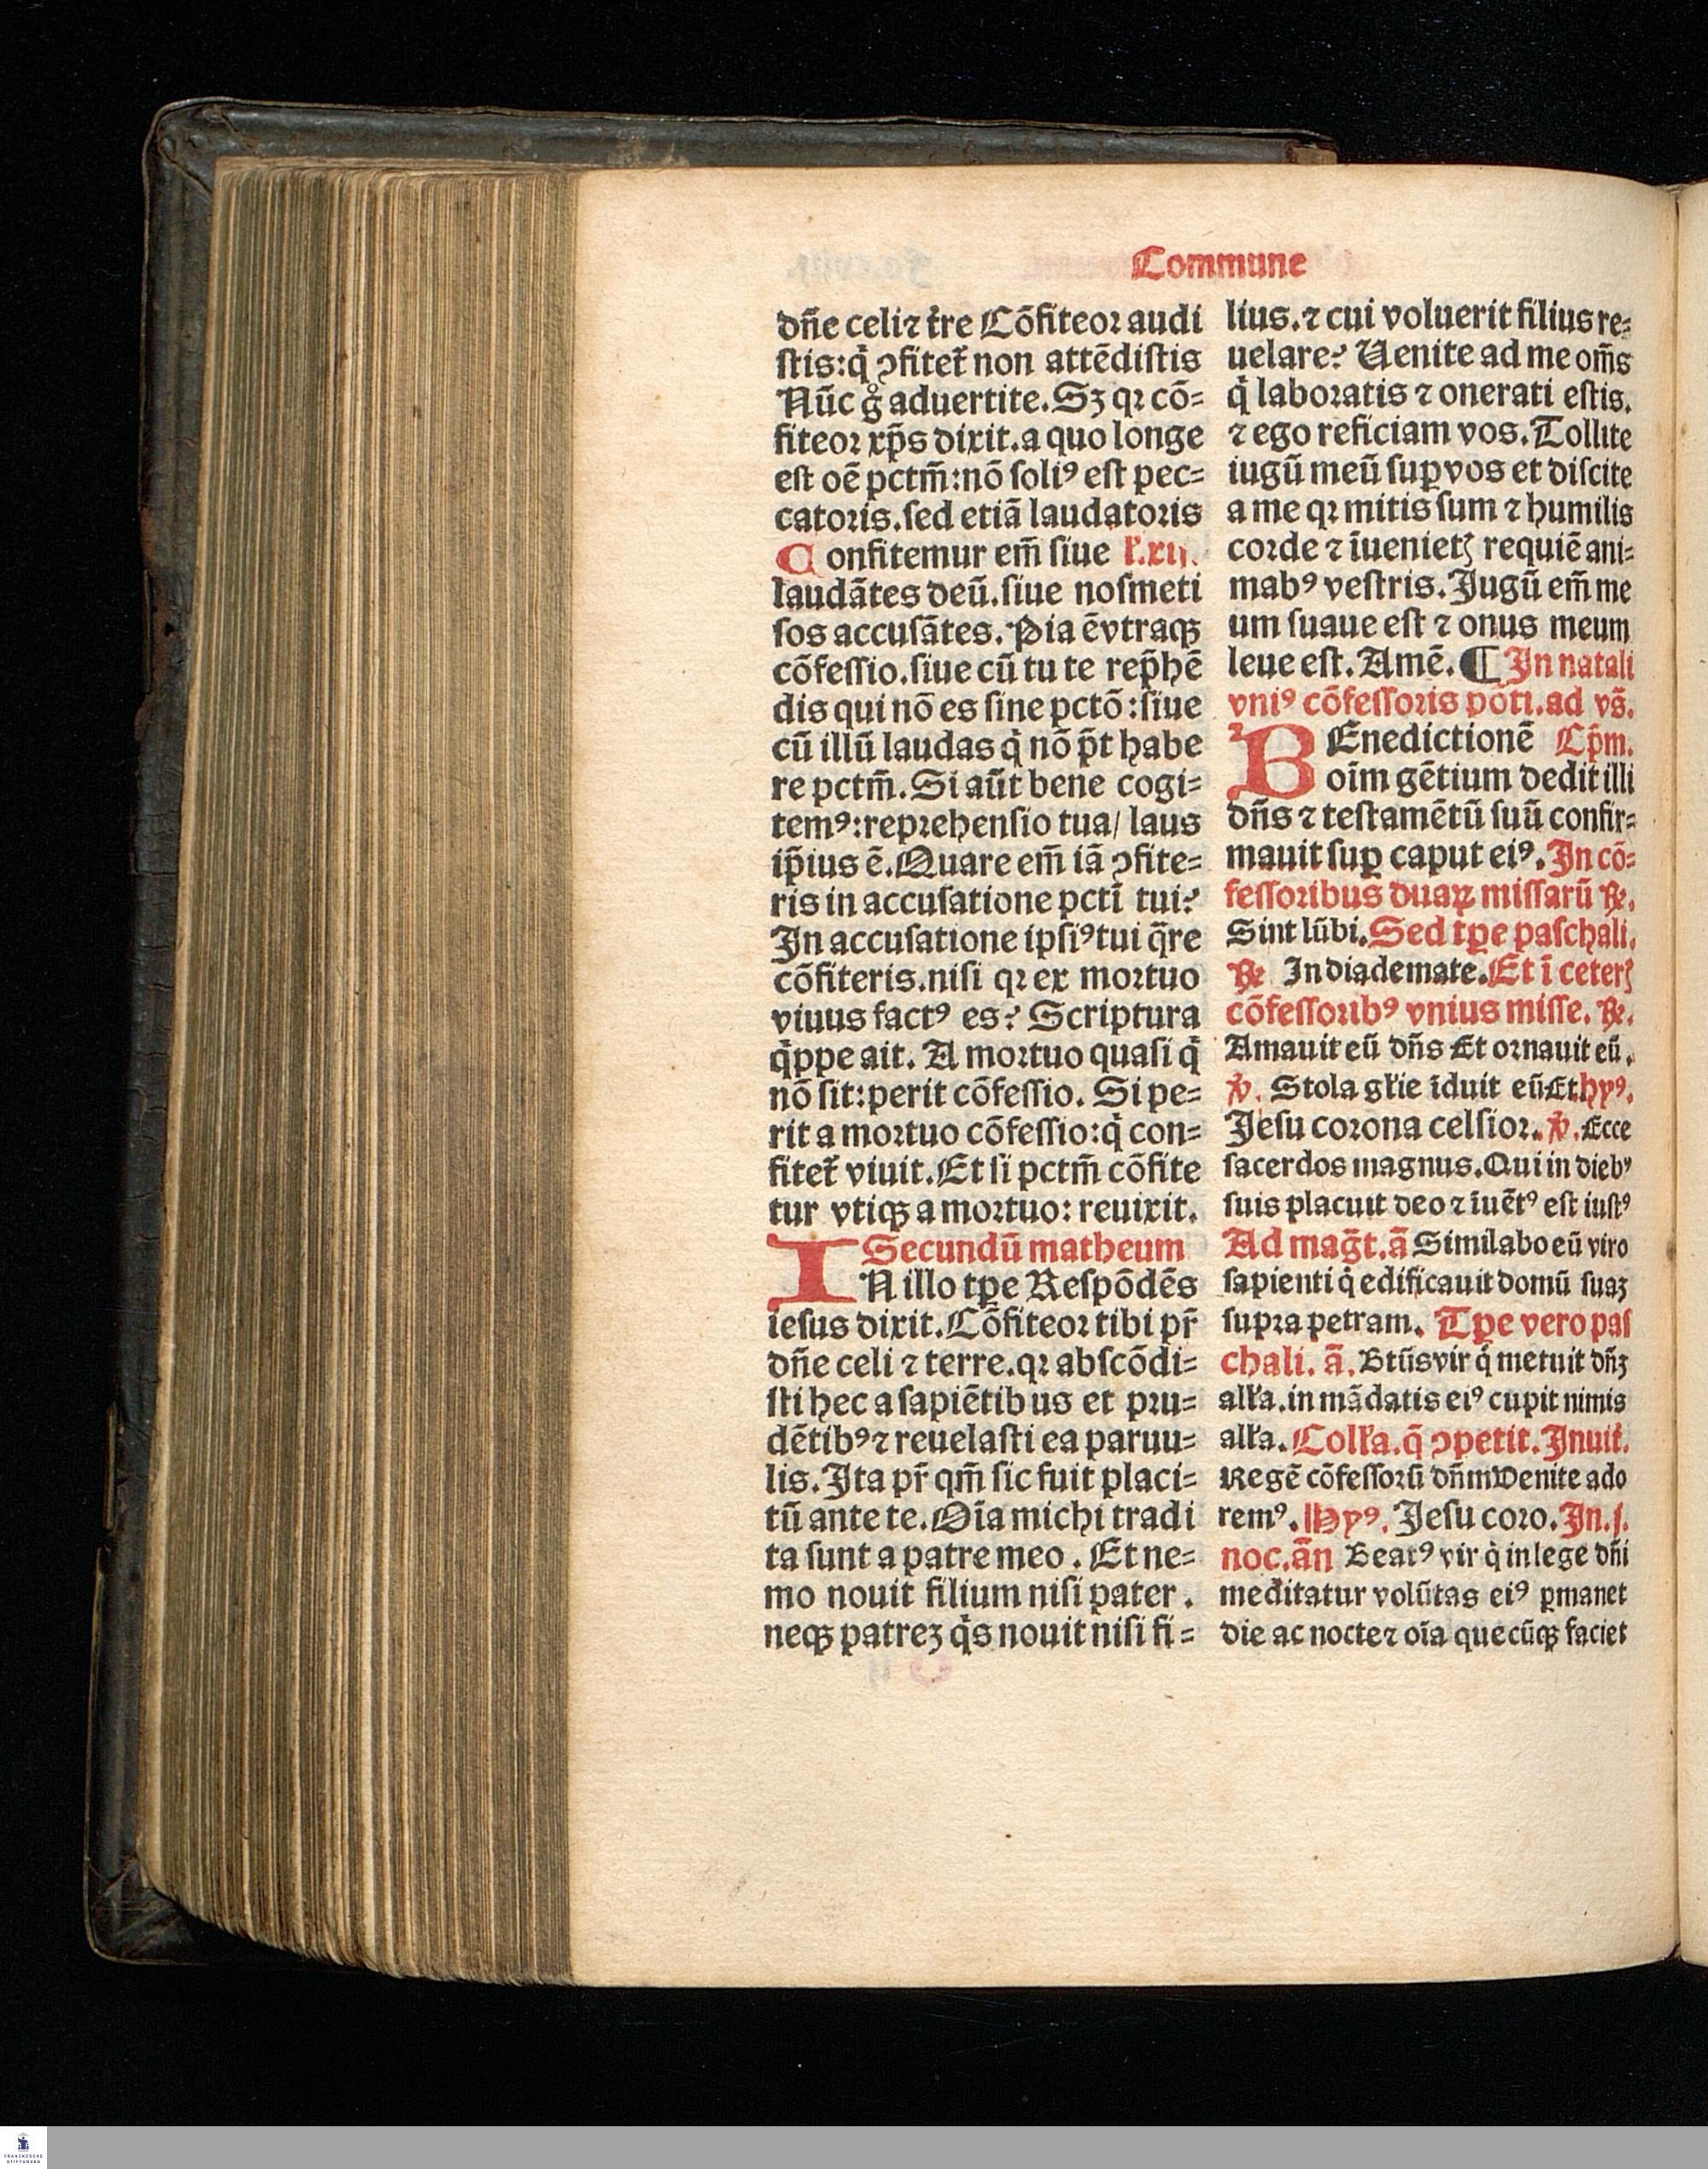 Commune
dñe celi ⁊ t̃re Cõfiteor audi
ſtis: q̇ ꝯfitet̃ non attẽdiſtis
Nũc g̊ aduertite. Sꝫ qꝛ cõ⸗
fiteor xp̃s dixit. a quo longe
eſt oẽ pctm̃: nõ ſoliꝰ eſt pec⸗
catoris. ſed etiã laudatoris
Confitemur em̃ ſiue
laudãtes deũ. ſiue noſmeti
ſos accuſãtes. Pia ẽ vtraqꝫ
cõfeſſio. ſiue cũ tu te rep̃hẽ
dis qui nõ es ſine pctõ: ſiue
cũ illũ laudas q̇ nõ p̃t habe
re pctm̃. Si aũt bene cogi⸗
temꝰ: reprehenſio tua/ laus
ip̃ius ẽ. Quare em̃ iã ꝯfite⸗
ris in accuſatione pcti tui?
In accuſatione ipſiꝰ tui q̃re
cõfiteris. niſi qꝛ ex mortuo
viuus factꝰ es? Scriptura
q̇ppe ait. A mortuo quaſi q̇
nõ ſit: perit cõfeſſio. Si pe⸗
rit a mortuo cõfeſſio: q̇ con⸗
fitet̃ viuit. Et ſi pctm̃ cõfite
tur vtiqꝫ a mortuo: reuixit.
Secundũ matheum
IN illo tꝑe Reſpõdẽs
ieſus dixit. Cõfiteor tibi pr̃
dñe celi ⁊ terre. qꝛ abſcõdi⸗
ſti hec a ſapiẽtibus et pru⸗
dẽtibꝰ ⁊ reuelaſti ea paruu⸗
lis. Ita pr̃ qm̃ ſic fuit placi⸗
tũ ante te. Oĩa michi tradi
ta ſunt a patre meo. Et ne⸗
mo nouit filium niſi pater.
neqꝫ patreꝫ q̇s nouit niſi fi⸗
lius. ⁊ cui voluerit filius re⸗
uelare? Uenite ad me om̃s
q̇ laboratis ⁊ onerati eſtis.
⁊ ego reficiam vos. Tollite
iugũ meũ ſuꝑ vos et diſcite
a me qꝛ mitis ſum ⁊ humilis
corde ⁊ ĩuenietꝭ requiẽ ani⸗
mabꝰ veſtris. Jugũ em̃ me
um ſuaue eſt ⁊ onus meum
leue eſt. Amẽ. ¶ In natali
vniꝰ cõfeſſoris põti. ad vs̃.
BEnedictionẽ Cp̃m.
oĩm gẽtium dedit illi
dñs ⁊ teſtamẽtũ ſuũ confir⸗
mauit ſuꝑ caput eiꝰ. In cõ⸗
feſſoribus duaꝝ miſſarũ ℞.
Sint lũbi. Sed tꝑe paſchali.
℞ In diademate. Et ĩ ceterꝭ
cõfeſſoribꝰ vnius miſſe. ℞.
Amauit eũ dñs Et ornauit eũ.
℣. Stola gl̃ie ĩduit eũ Et. hyꝰ.
Jeſu corona celſior. ℣. Ecce
ſacerdos magnus. Qui in diebꝰ
ſuis placuit deo ⁊ ĩuẽtꝰ eſt iuſtꝰ
Ad mag̃t. ã Similabo eũ viro
ſapienti q̇ edificauit domũ ſuaꝫ
ſupra petram. Tꝑe vero paſ
chali. ã. Btũs vir q̇ metuit dñꝫ
all̃a. in mãdatis eiꝰ cupit nimis
all̃a. Coll̃a. q̃ ꝯpetit. Inuit̃.
Regẽ cõfeſſorũ dñm Venite ado
remꝰ. Hyꝰ. Jeſu coro. In. j.
noc. ãn Beatꝰ vir q̇ in lege dñi
meditatur volũtas eiꝰ ꝑmanet
die ac nocte ⁊ oĩa quecũqꝫ faciet
FRANCKESCHE
STIFTUNGEN